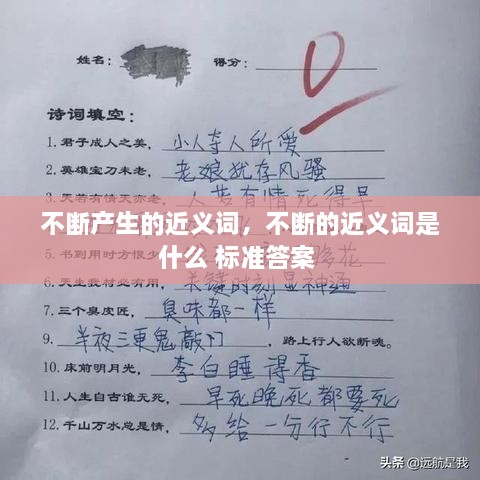 姓名：
得分：
0
诗词填空：
1.君子成人之美，小人夺人所爱
2.英雄宝刀未老，老娘犹存风骚
3.天若有情天亦老，人若有情死得早
不断产生的近义词，不断的近义词是
什么 标准答案
5.书到用时方恨少，
6.天生我材必有用，关键时刻显神通
7.三个臭皮匠，臭味都一样
9.半夜三更鬼敲门，路上行人欲断魂。
10.床前明月光，李白睡得香
11.人生自古谁无死，早死晚死都要死
12.千山万水总是情，多给一分行不行
头条 @远航是我